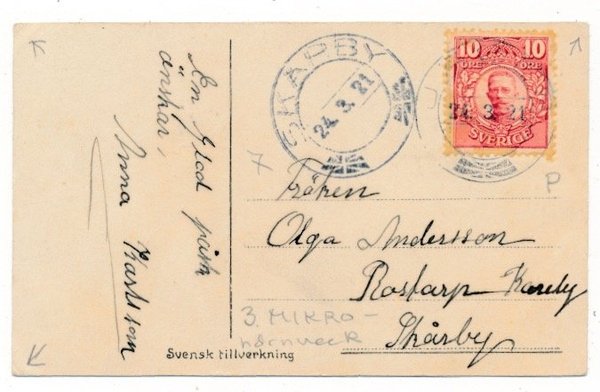 En Glad påsk
önskar,
Anna Karlsson
SKARBY
24. 3. 21
10 10
ÖRE ÖRE
24. 3. 21
SVERIGE
Fröken
Olga Andersson
Rostarp
Skårby
P
3. MIKRO-
hörnveck
Svensk tillverkning